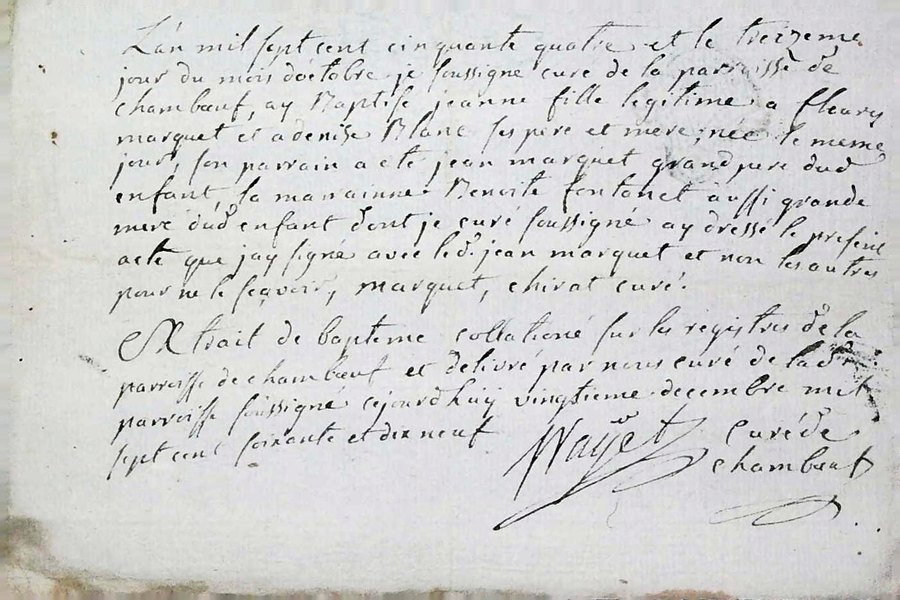 L'an mil sept cent cinquante quatre et le treizeme
jour du mois doctobre je soussigné curé de la parroisse de
chambœuf, ay Baptisé jeanne fille legitime a fleury
marquet et a denise Blanc ses pere et mere, née le meme
jour, son parrain a eté jean marquet grand pere dud
enfant, la marrainne Benoite fontanet aussi grande
mere dud enfant dont je curé soussigné ay dressé le present
acte que jay signé avec led. jean marquet et non les autres
pour ne le sçavoir, marquet, chirat curé.
Extrait de baptême collationé sur les registres de la
parroisse de chambœuf et délivré par nous curé de lad
parroisse soussigné cejourdhuy vingtieme decembre mil
sept cent soixante et dix neuf
curé de
chambœuf